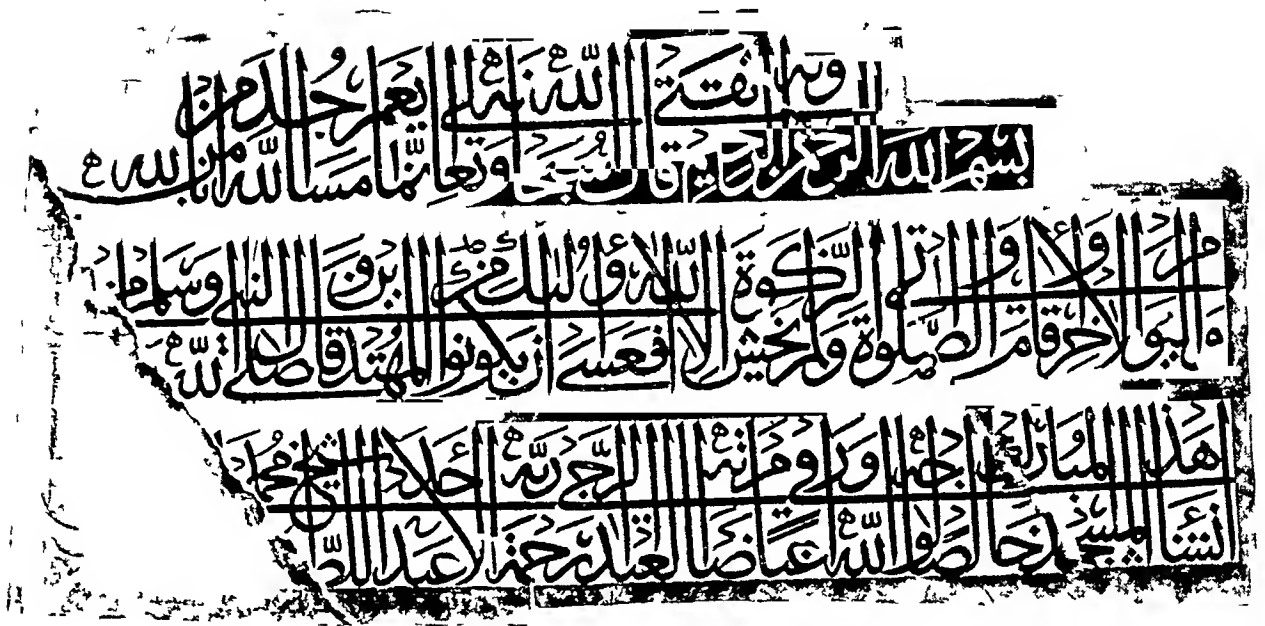 بسم الله الرحمن الرحيم وبه ثقتي قال الله سبحانه وتعالى إنما يعمر مساجد الله من آمن بالله
واليوم الآخر وأقام الصلوة وآتى الزكوة ولم يخش إلا الله فعسى أولئك أن يكونوا من المهتدين قال النبي صلى الله عليه وسلم
انشأ هذا المسجد المبارك خالصا لوجه الله في مرضاته العبد الراجي رحمة ربه شيخ محمد